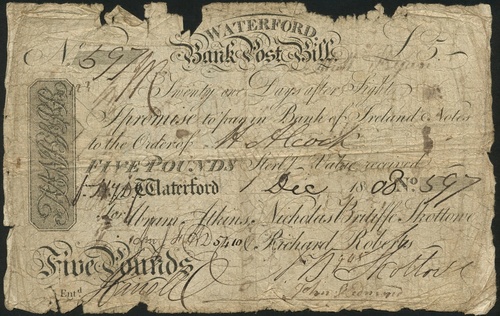 WATERFORD.
No. 597 Bank Post Bill. £5
Twenty one Days after Sight
I promise to pay in Bank of Ireland Notes
to the Order of H Alcock
FIVE POUNDS Sterl.g Value received
Waterford 1 Dec 1808 No 597
For Abram. Atkins Nicholas Briliffe Skottowe
Richard Roberts
Five Pounds Skottowe
Ent.d John